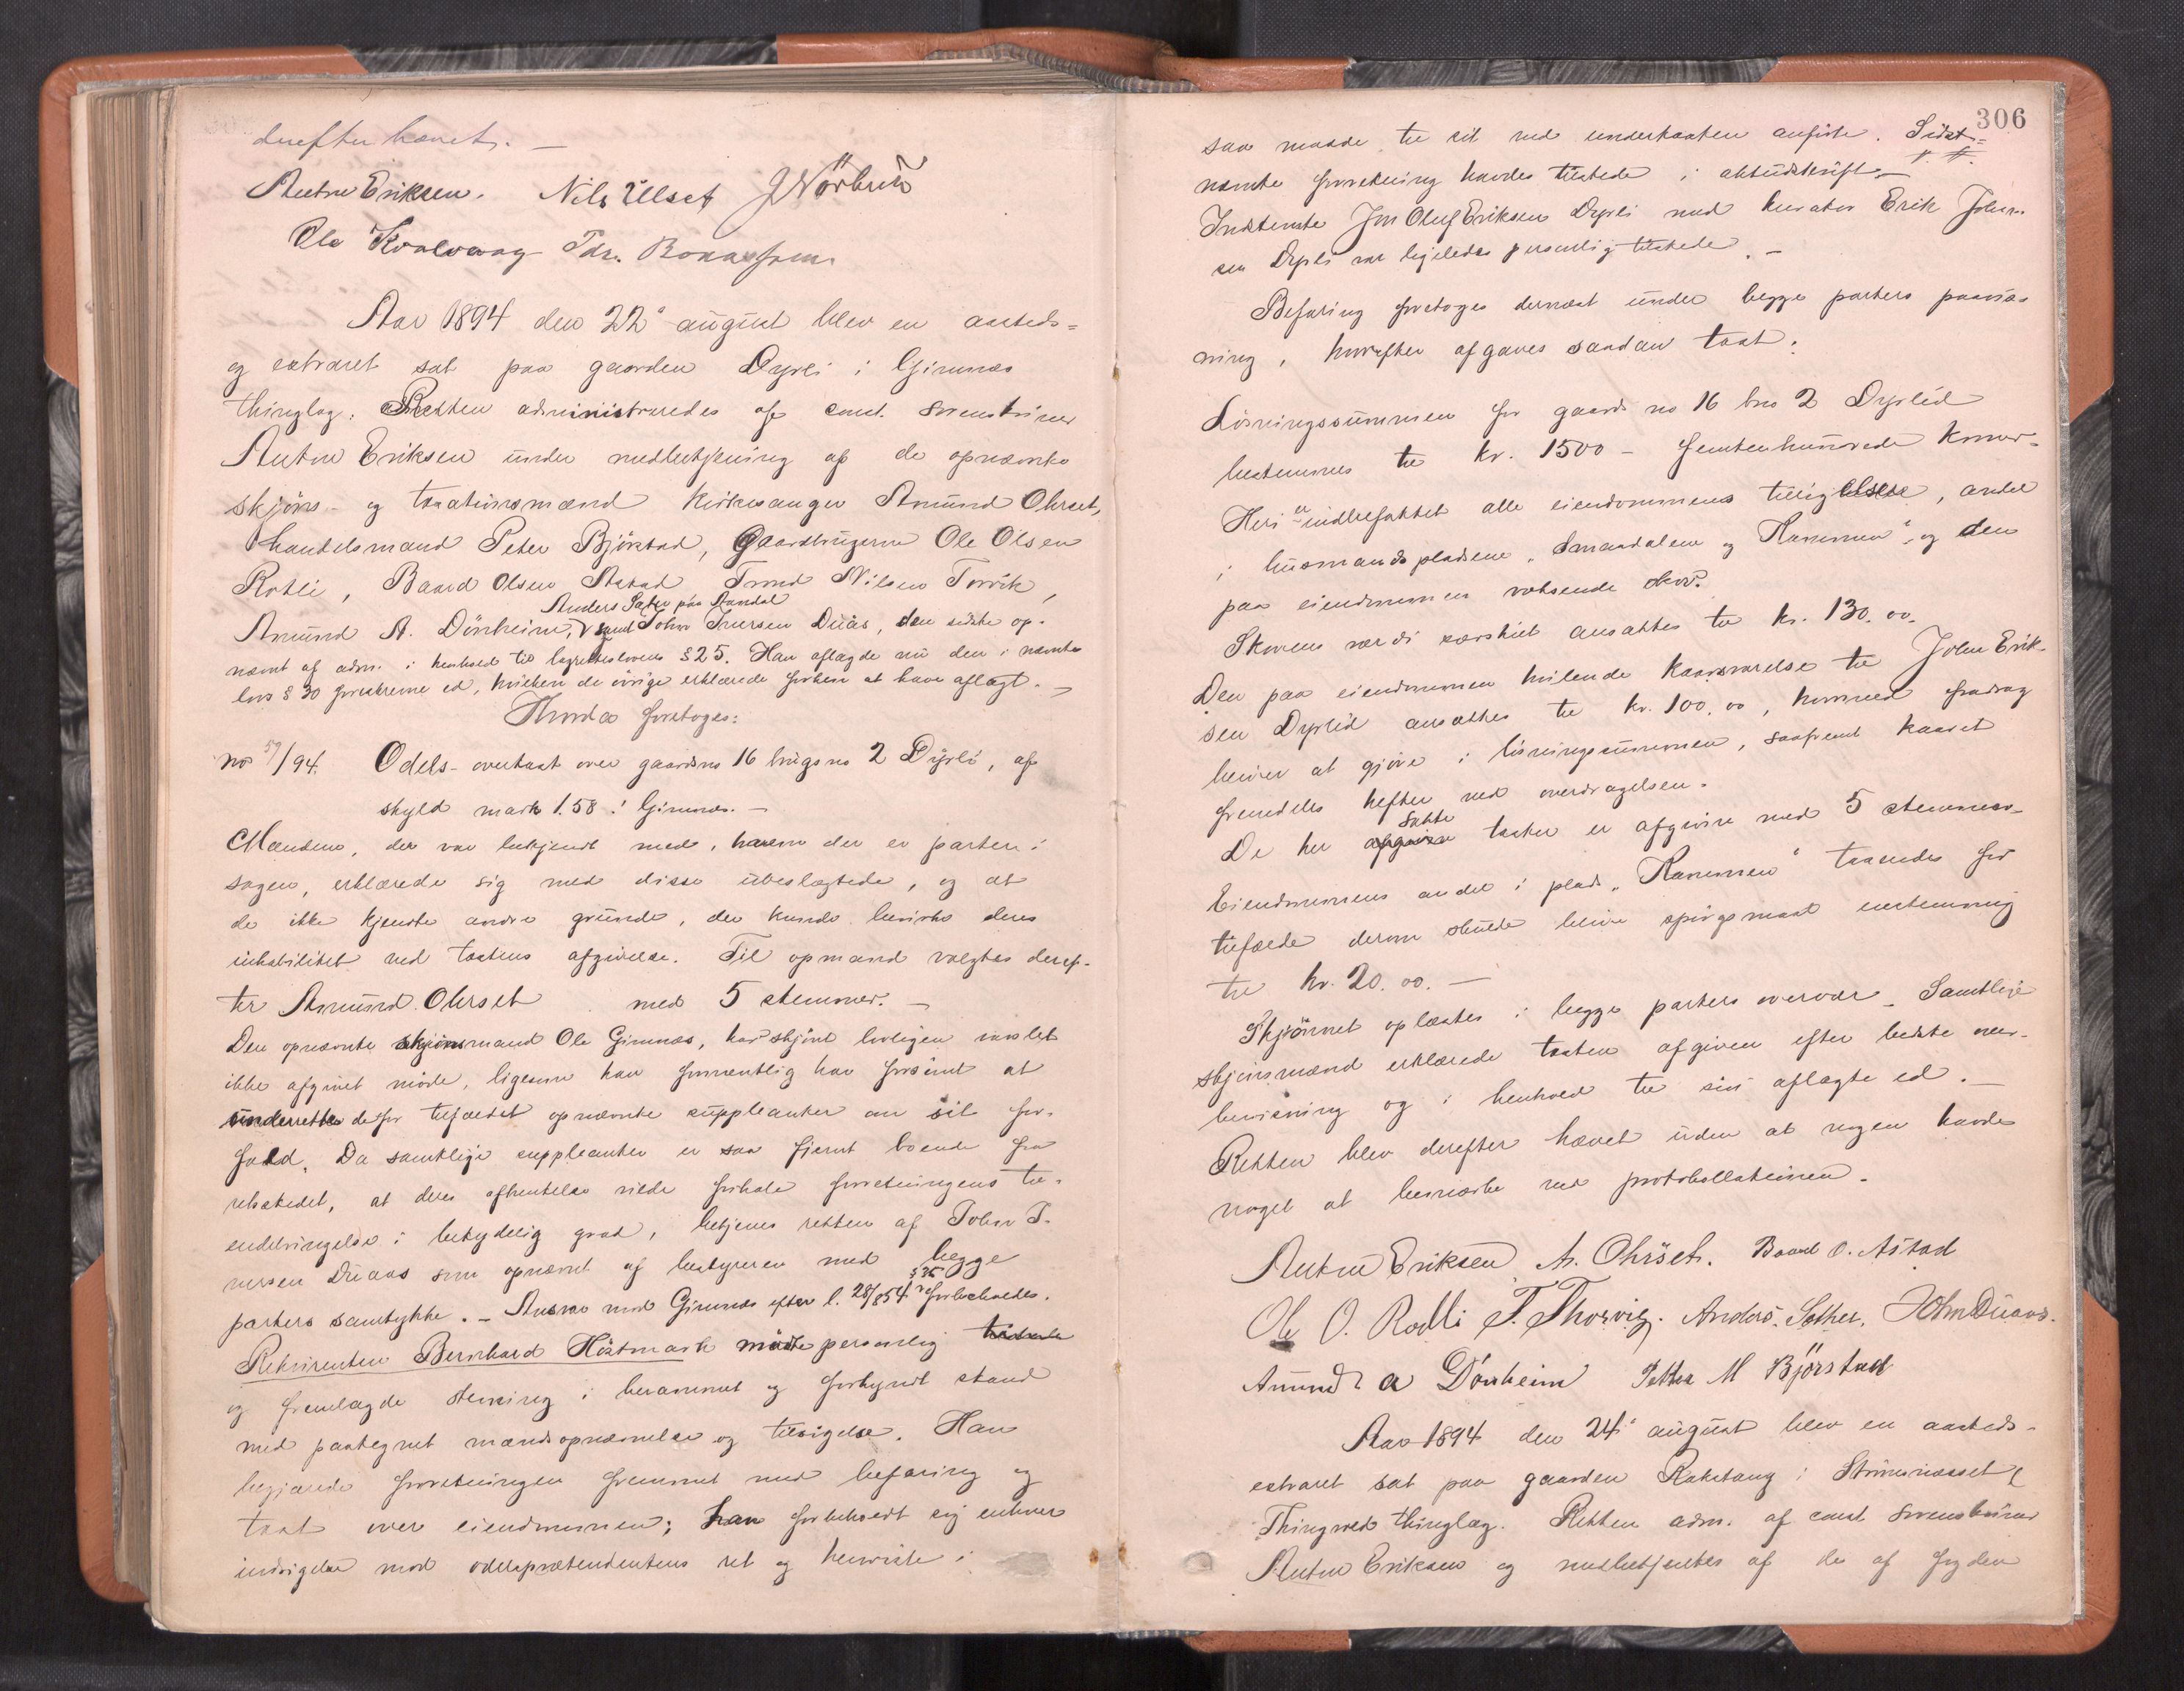 derefter hævet. —
Anton Eriksen. Nils Ullset J Nörbech
Ole Kvalvaag Pdr.
Aar 1894 den 22' august blev en aasteds-
og extraret sat paa gaarden Dyrli i Gimnæs
thinglag. Retten administreredes af const. sorenskriver
Anton Eriksen under medbetjening af de opnævnte
skjöns- og taxationsmænd kirkesanger Amund Ohrset,
handelsmand Peter Bjöstad, gaardbrugerne Ole Olsen
Rotli, Baard Olsen Astad, Trond Nilsen Torvik,
Anders Sæter paa Aandal
Amund A. Dönheim, samt John Iversen Duås, den sidste op-
nævnt af adm. i henhold til lagrettelovens § 25. Han aflagde nu den i nævnte
lovs § 30 foreskrevne ed, hvilken de övrige erklærede forhen at have aflagt. —
Hvorda foretoges:
No 57/94. Odels-overtaxt over gaardsno 16 brugsno 2 Dyrli, af
skyld mark 1.58 i Gimnæs. —
Mændene, der var bekjendt med, hvem der er parter i
sagen, erklærede sig med disse ubeslægtede, og at
de ikke kjendte andre grunde, der kunde bevirke deres
inhabilitet ved taxtens afgivelse. Til opmand valgtes deref-
ter Amund Ohrset med 5 stemmer. —
Den opnævnte skjönsmand Ole Gimnæs, har skjönt lovligen varslet
ikke afgivet möde, ligesom han formentlig har forsömt at
underrette de for tilfældet opnævnte suppleanter om sit for-
fald. Da samtlige suppleanter er saa fjernt boende fra
retsstedet, at deres afhentelse vilde forhale forretningens til-
endebringelse i betydelig grad, betjenes retten af John I-
versen Duaas som opnævnt af bestyreren med begge
parters samtykke. – Ansvar mod Gimnæs efter l. 28/8 54 § 35 forbeholdes.
Rekvirenten Bernhard Höstmark mödte personlig
og fremlagde stevning i berammet og forkyndt stand
med paategnet mandsopnævnelse og tilsigelse. Han
begjærede forretningen fremmet med befaring og
taxt over eiendommen; han forbeholdt sig enhver
indsigelse mod odelsprætendentens ret og henviste i
306
saa maade til sit ved undertaxten anförte. Sidst-
nævnte forretning havdes tilstede i aktudskrift. —
Indstevnte Jon Oluf Eriksen Dyrli med kurator Erik John-
sen Dyrli var ligeledes personlig tilstede. —
Befaring foretoges dernæst under begge parters paavis-
ning, hvorefter afgaves saadan taxt:
Lösningssummen for gaards no 16 bno 2 Dyrlid
bestemmes til kr. 1500 – femtenhundrede kroner –
Heri er indbefattet alle eiendommens tilligelser, andel
i husmandspladsene „Smaadalene og Rammen“ og den
paa eiendommen voksende skov.
Skovens værdi særskilt ansattes til kr. 130.00.
Den paa eiendommen hvilende kaarsvarelse til John Erik-
sen Dyrlid ansættes til kr. 100.00, hvormed fradrag
bliver at gjöre i lösningssummen, saafremt kaaret
fremdeles hefter ved overdragelsen.
De her satte taxter er afgivne med 5 stemmer –
Eiendommens andel i plads „Rammen“ taxeredes for
tilfælde derom skulde blive spörgsmaal enstemmig
til kr. 20.00. —
Skjönnet oplæstes i begge parters overvær. Samtlige
skjönsmænd erklærede taxten afgiven efter bedste over-
bevisning og i henhold til sin aflagte ed. —
Retten blev derefter hævet uden at nogen havde
noget at bemærke ved protokollationen. –
Anton Eriksen A. Ohrset. Baard O. Astad
Ole O. Rodli T. Thorvig. Anders. Sæther. John Duaas.
Amund A Dönheim Petter M Björstad
Aar 1894 den 24' august blev en aasteds-
extraret sat paa gaarden Rakstang i Strömsnæsset
Thingvold thinglag. Retten adm. af const sorenskriver
Anton Eriksen og medbetjentes af de af fogden